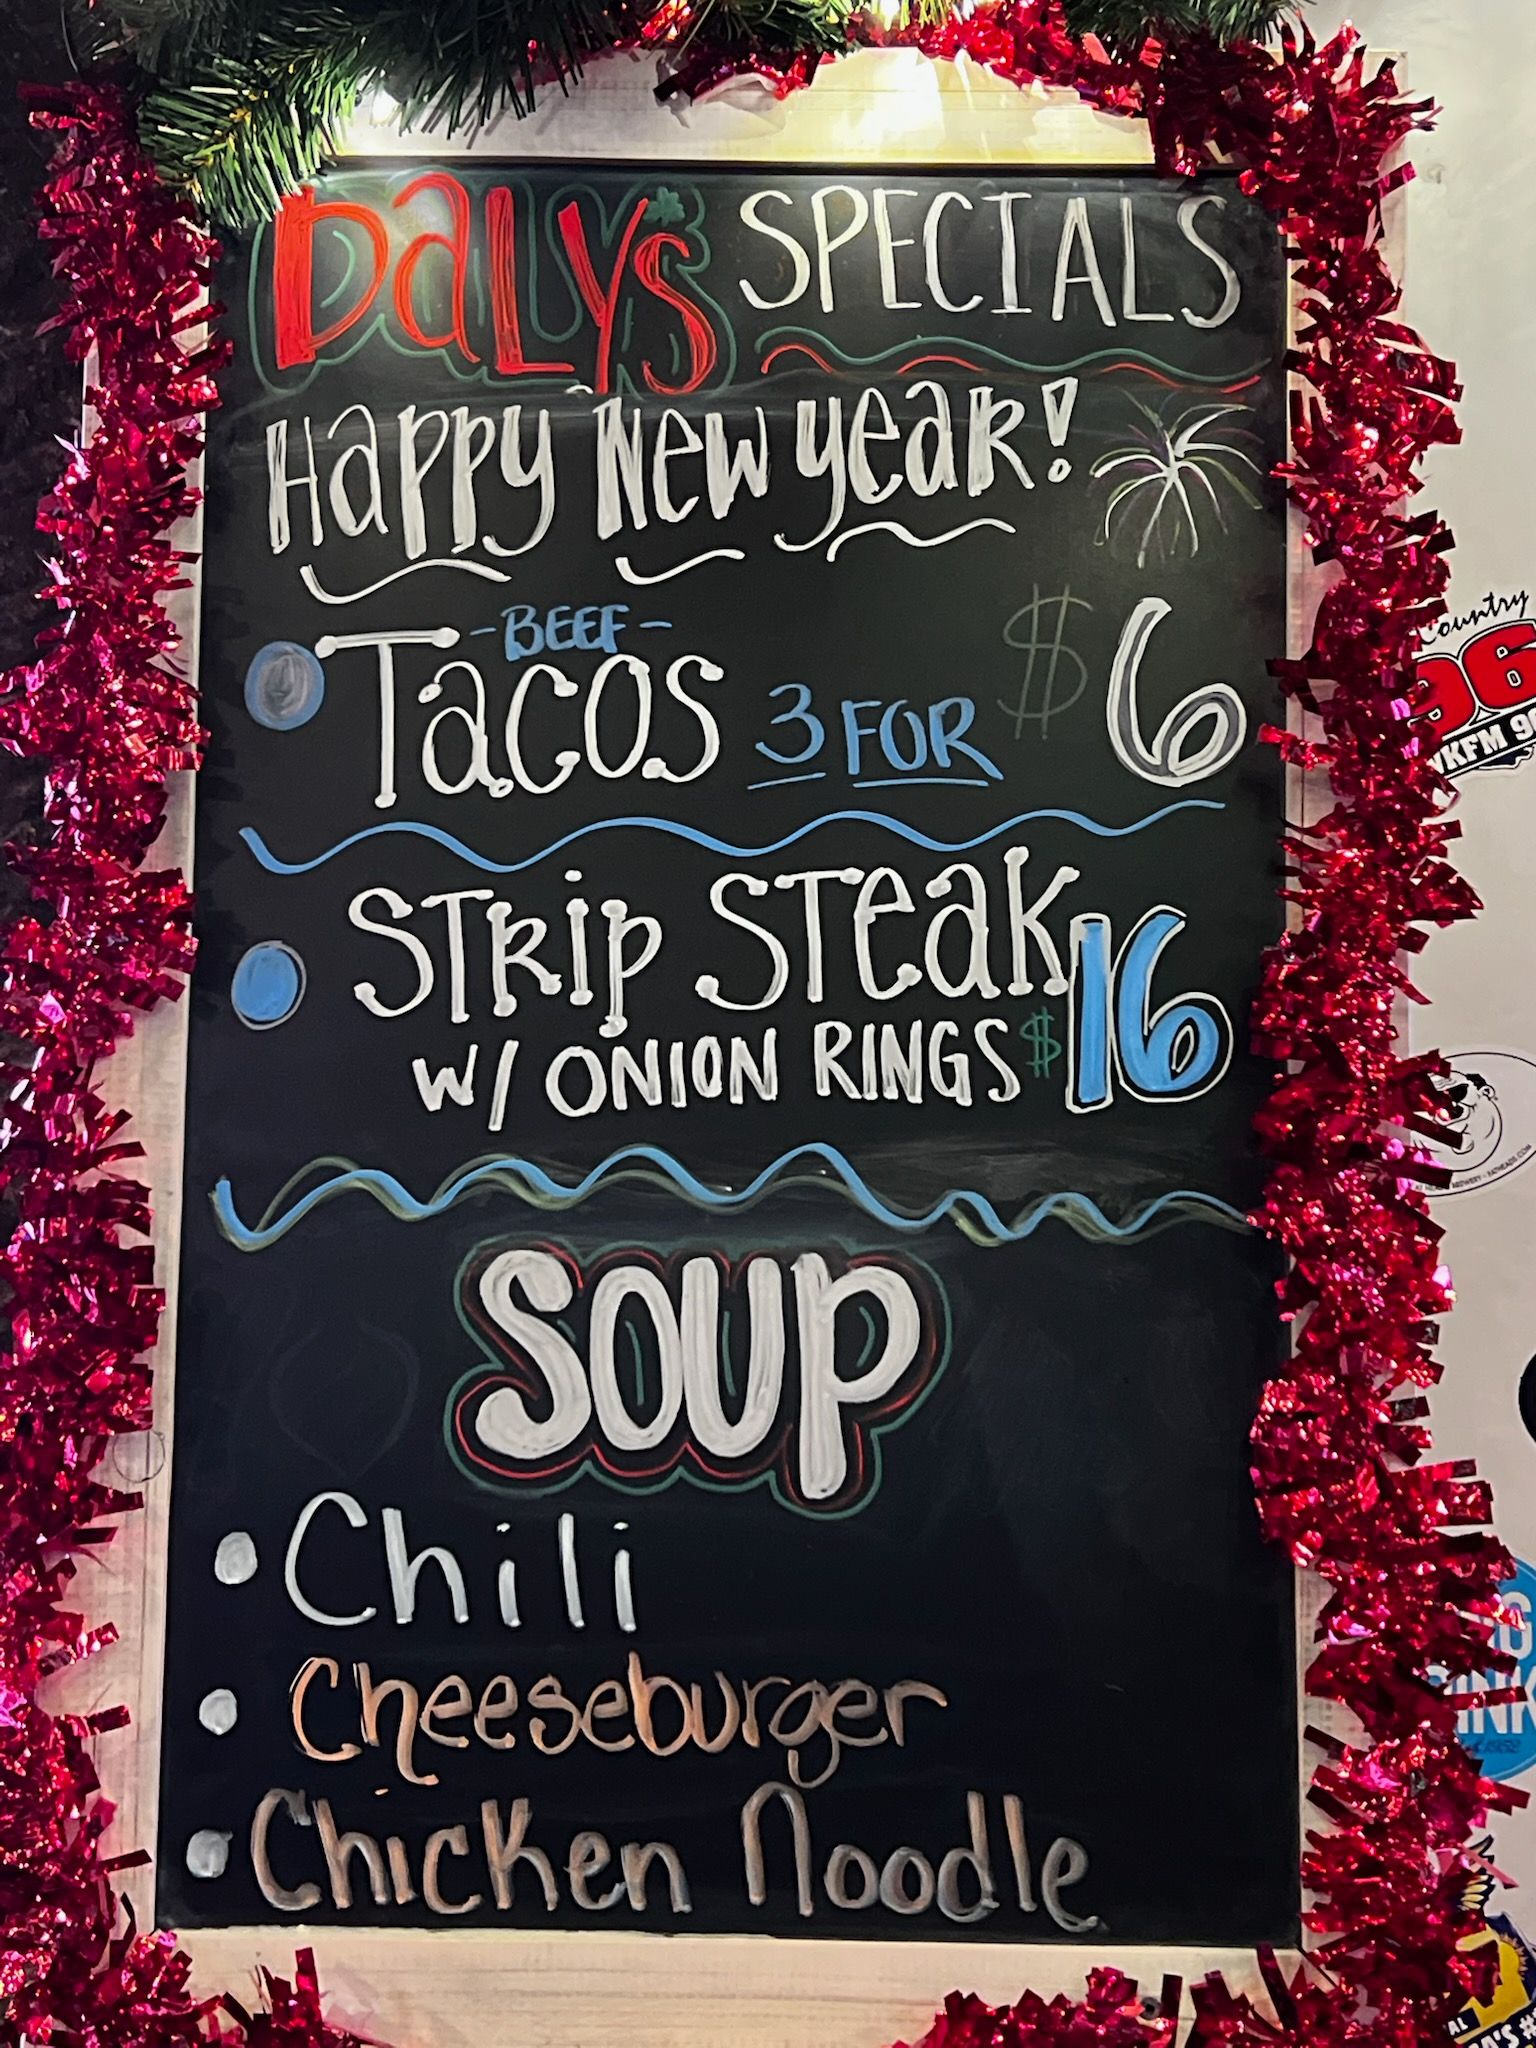 DaLYs SPECIALS
Happy New year!
-BEEF-
Tacos 3 FOR $6
STRip STeak
w/ ONION RINGS $16
SOUP
Chili
Cheeseburger
Chicken Noodle
Country
96
WKFM 96
BREWERY • FATHEADS.COM